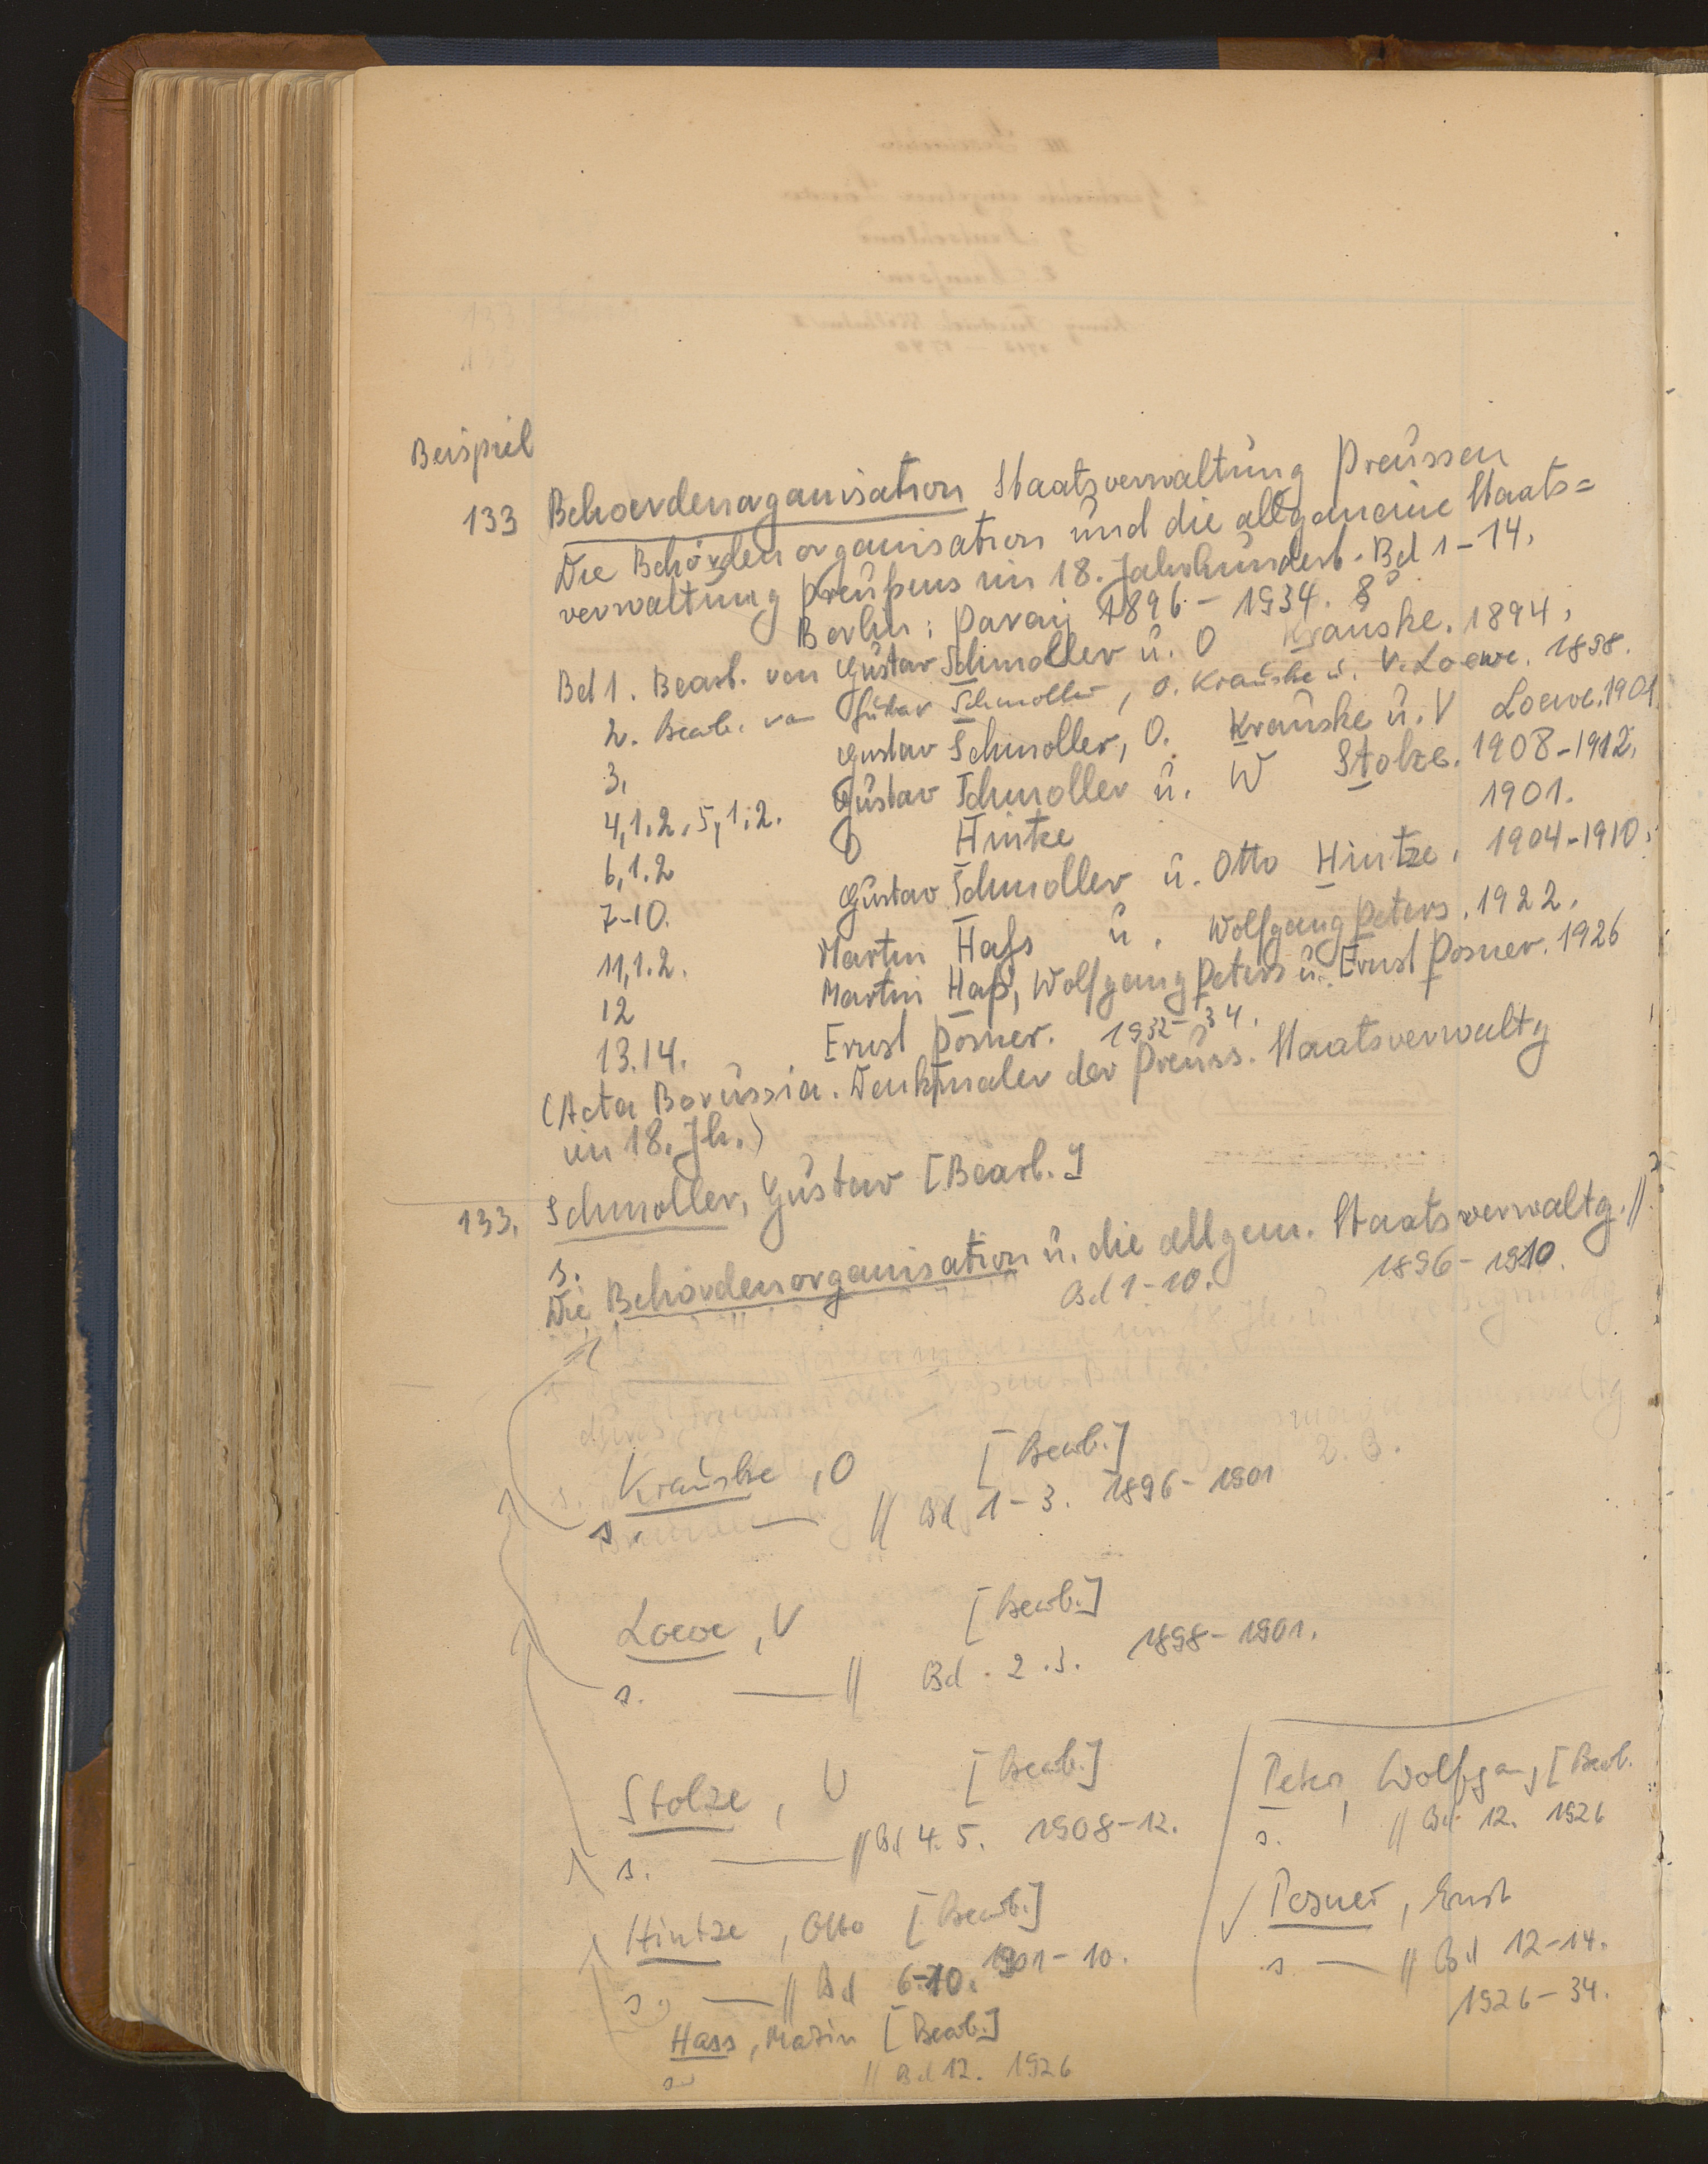 Beispiel
133 Behoerdenorganisation Staatsverwaltung Preussen
Die Behördenorganisation und die allgemeine Staats=
verwaltung Preußens im 18. Jahrhundert. Bd 1-14.
Berlin: Parey 1896-1934. 8°
Bd 1. Bearb. von Gustav Schmoller u. O Krauske. 1894.
2. Bearb. von Gustav Schmoller, O. Krauske u. V. Loewe. 1898.
3. Gustav Schmoller, O. Krauske u. V Loewe. 1901.
4,1.2. 5,1.2. Gustav Schmoller u. W Stolze. 1908-1912.
6,1.2 O Hintze 1901.
7-10. Gustav Schmoller u. Otto Hintze. 1904-1910.
11,1.2. Martin Hass u. Wolfgang Peters. 1922.
12 Martin Haß, Wolfgang Peters u. Ernst Posner. 1926
13.14. Ernst Posner. 1932-34.
(Acta Borussia. Denkmaler der Preuss. Staatsverwaltg
im 18. Jh.)
133. Schmoller, Gustav [Bearb.]
s.
Die Behördenorganisation u. die allgem. Staatsverwaltg. //
Bd 1-10. 1896-1910.
Krauske, O [Bearb.]
s. — // Bd 1-3. 1896-1901
Loewe, V [Bearb.]
s. — // Bd. 2.3. 1898-1901.
Stolze, W [Bearb.]
s. — // Bd 4. 5. 1908-12.
Hintze, Otto [Bearb.]
s. — // Bd 6-10. 1901-10.
Hass, Martin [Bearb.]
s. // Bd 12. 1926
Peters, Wolfgang [Bearb.
s. // Bd 12. 1926
Posner, Ernst
s — // Bd 12-14.
1926-34.